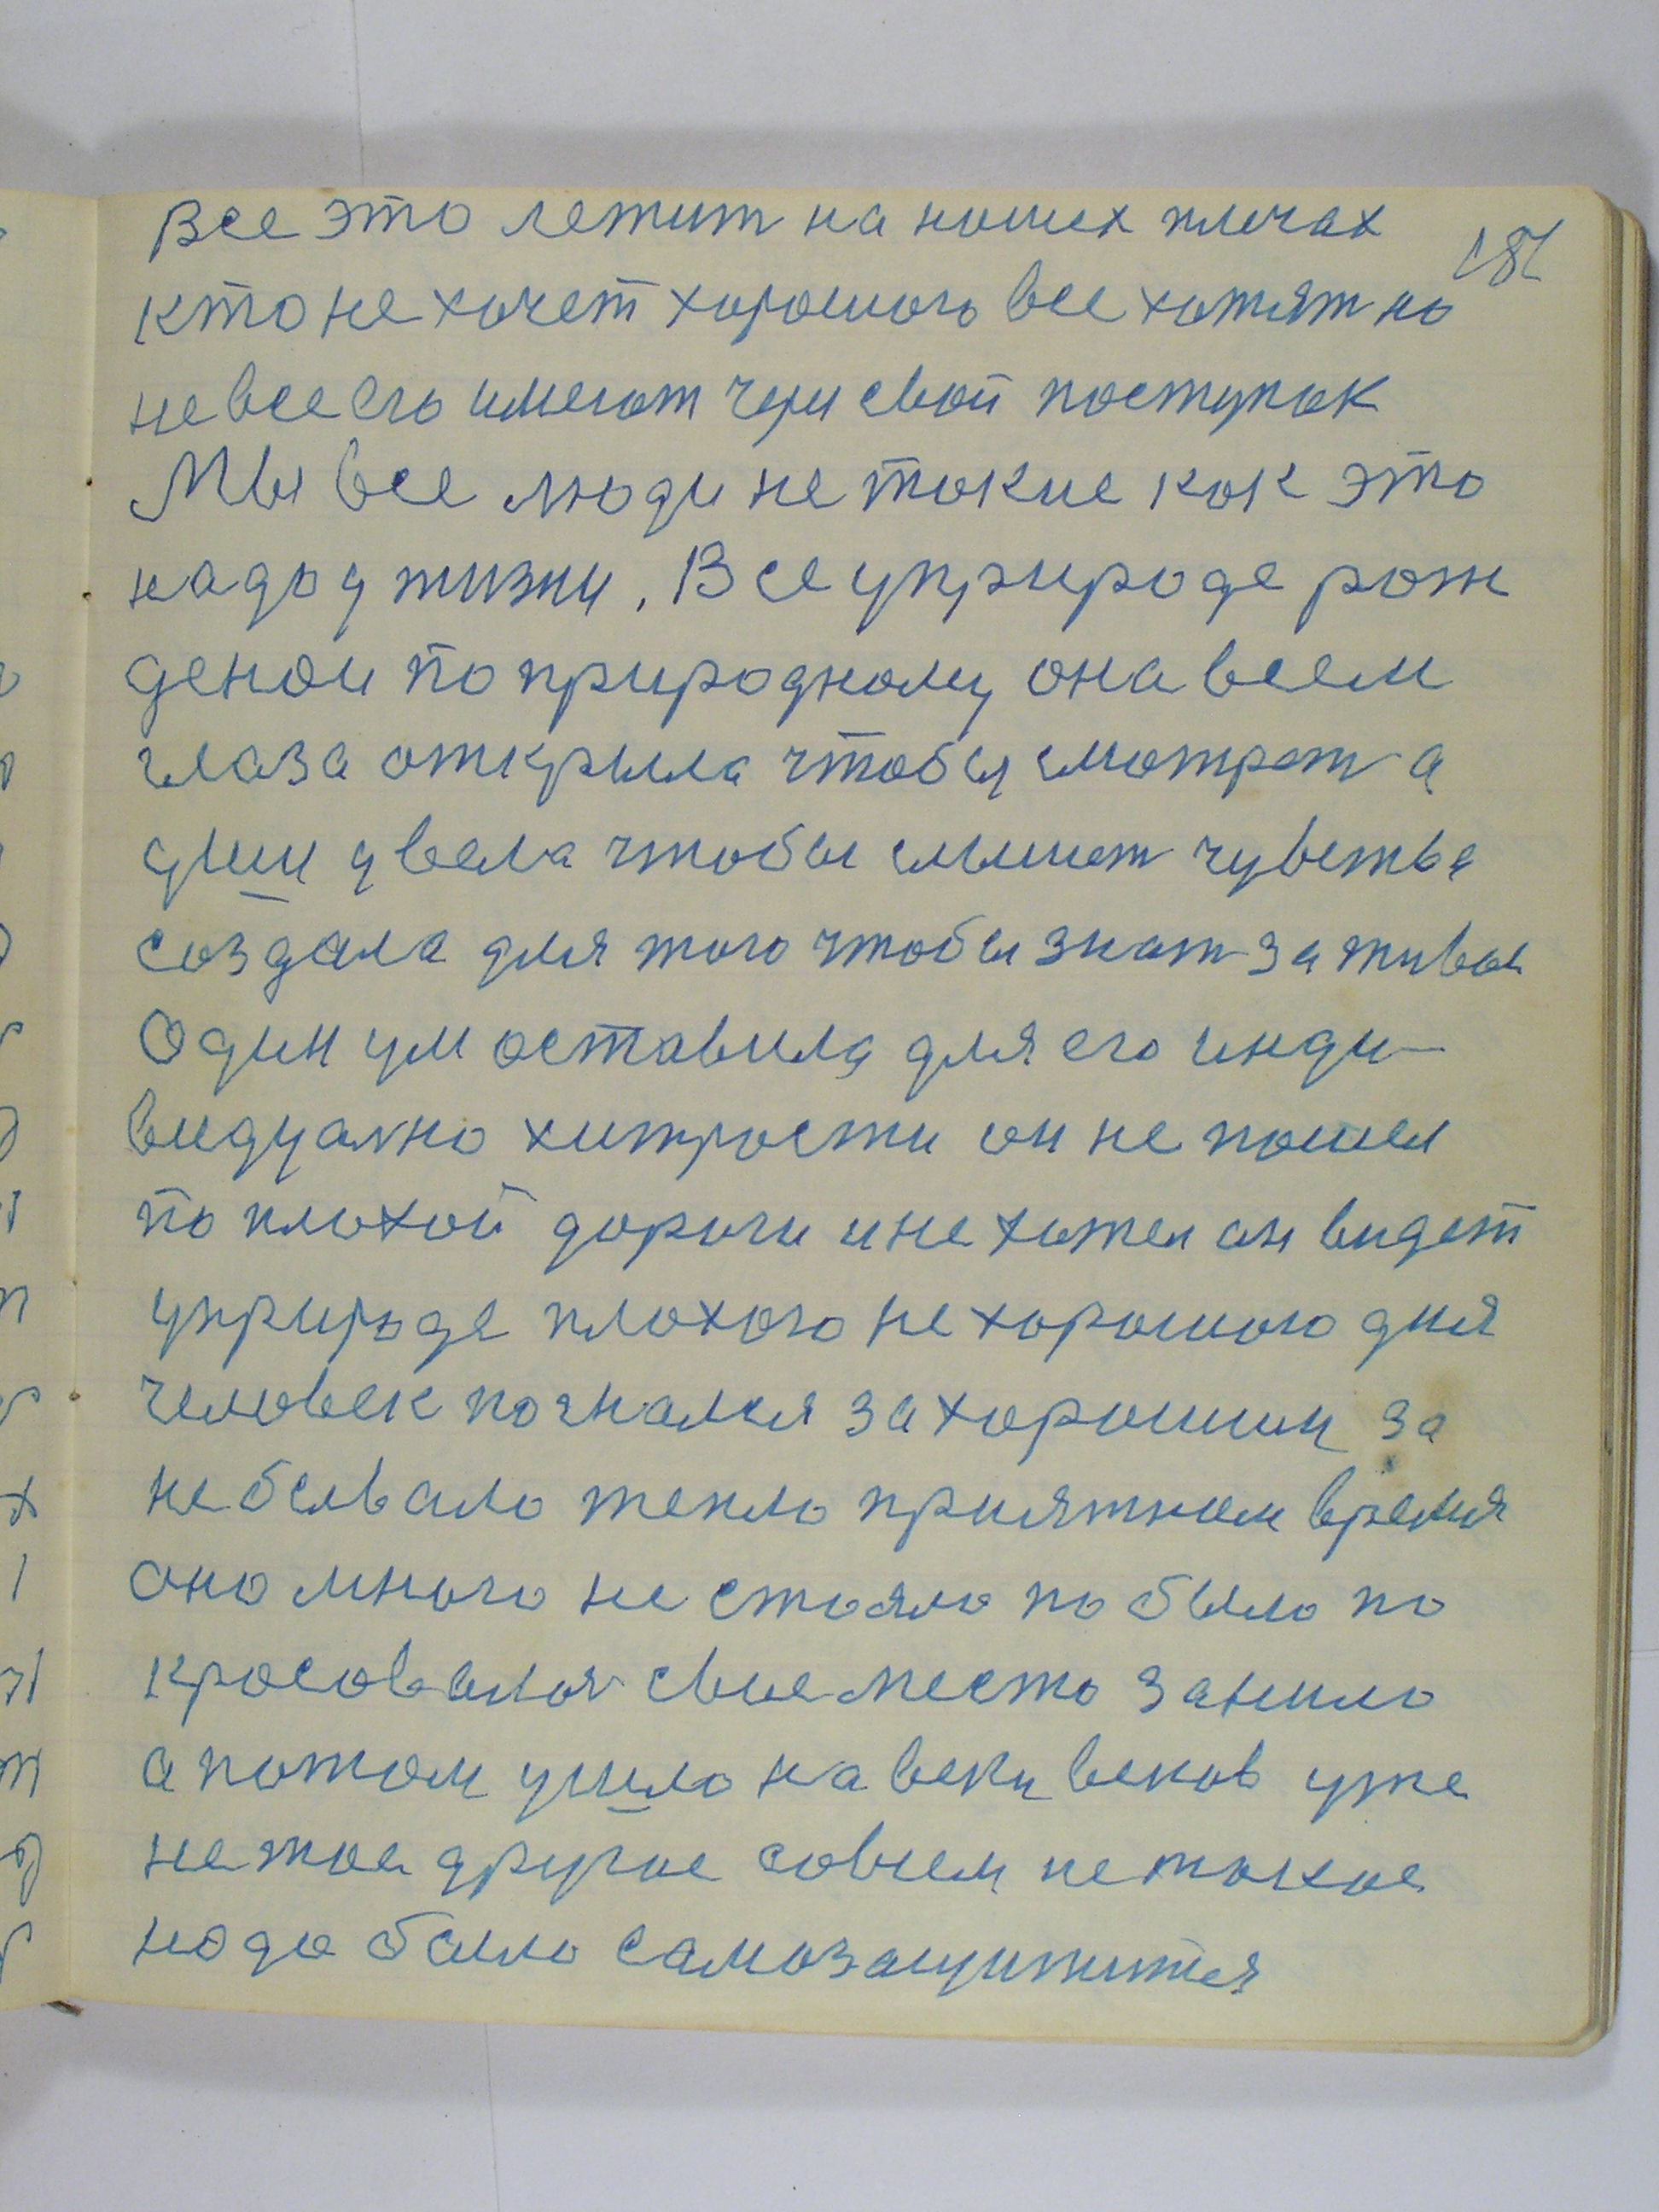 181
Все это лежит на наших плечах
кто не хочет хорошого все хотят но
не все его имеют чери свой поступок
Мы все люди не такие как это
надо у жизни. Все у природе рож
деное по природному она всем
глаза открыла чтобы смотрет а
уши двела чтобы слышет чувства
создала для того чтобы знат за живое
Один ум оставила для его инди-
видуално хитрости он не пошел
по плохой дороги и не хотел он видет
у природе плохого не хорошого дня
человек погнался за хорошим за
небывало тепло приятном время
оно много не стояло побыло по
красовалось свое место заняло
а потом ушло на веки веков уже
не тое другое совсем не такое
надо было самозащитится